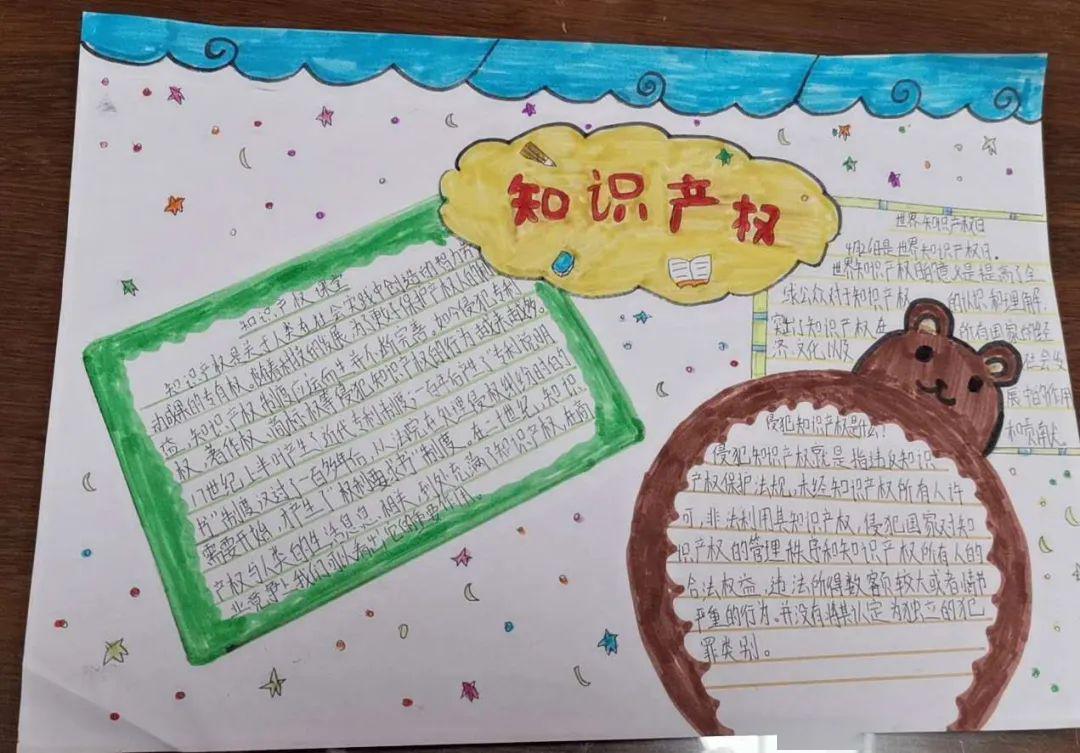 知识产权
知识产权课堂
知识产权是关于人类在社会实践中创造的智力劳
动成果的专有权。随着科技的发展,为了更好保护产权人的利
益,知识产权制度应运而生并不断完善。如今侵犯专利
权、著作权、商标权等侵犯知识产权的行为越来越多。
17世纪上半叶产生了近代专利制度;一百年后产生了"专利说明
书"制度;又过了一百多年后,从法院在处理侵权纠纷时的
需要开始,才产生了"权利要求书"制度。在二十一世纪,知识
产权与人类的生活息息相关,到处充满了知识产权,在商
业竞争上我们可以看出它的重要作用。
世界知识产权日
4月26日是世界知识产权日。
世界知识产权日的意义是提高了全
球公众对于知识产权 的认识和理解,
突出了知识产权在 所有国家的经
济、文化以及 社会发
展中的作用
和贡献。
侵犯知识产权是什么?
侵犯知识产权就是指违反知识
产权保护法规,未经知识产权所有人许
可,非法利用其知识产权,侵犯国家对知
识产权的管理秩序和知识产权所有人的
合法权益,违法所得数额较大或者情节
严重的行为。并没有将其认定为独立的犯
罪类别。